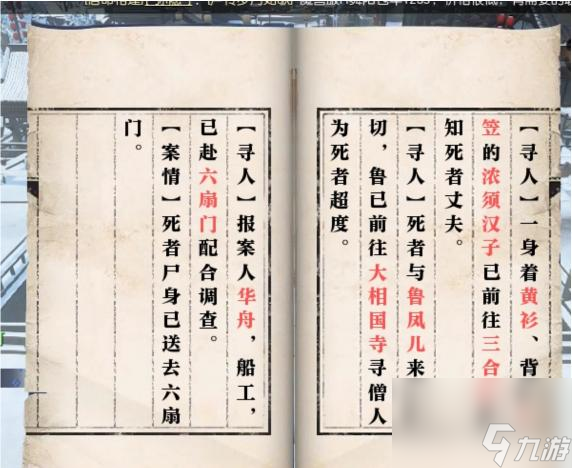 【寻人】一身着黄衫、背
笠的浓须汉子已前往三合
知死者丈夫。
【寻人】死者与鲁凤儿来
切，鲁已前往大相国寺寻僧人
为死者超度。
【寻人】报案人华舟，船工，
已赴六扇门配合调查。
【案情】死者尸身已送去六扇
门。
九游